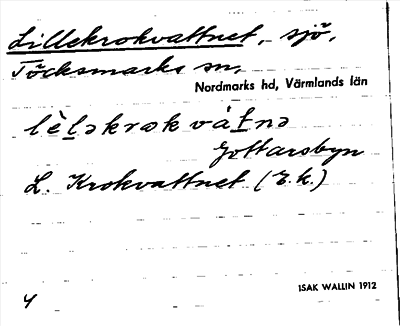 Lillekrokvattnet, sjö,
Töcksmarks sn,
Nordmarks hd, Värmlands län
lèləkrɔkvátnə
Gottarsbyn
L. Krokvattnet (E.k.)
ISAK WALLIN 1912
4